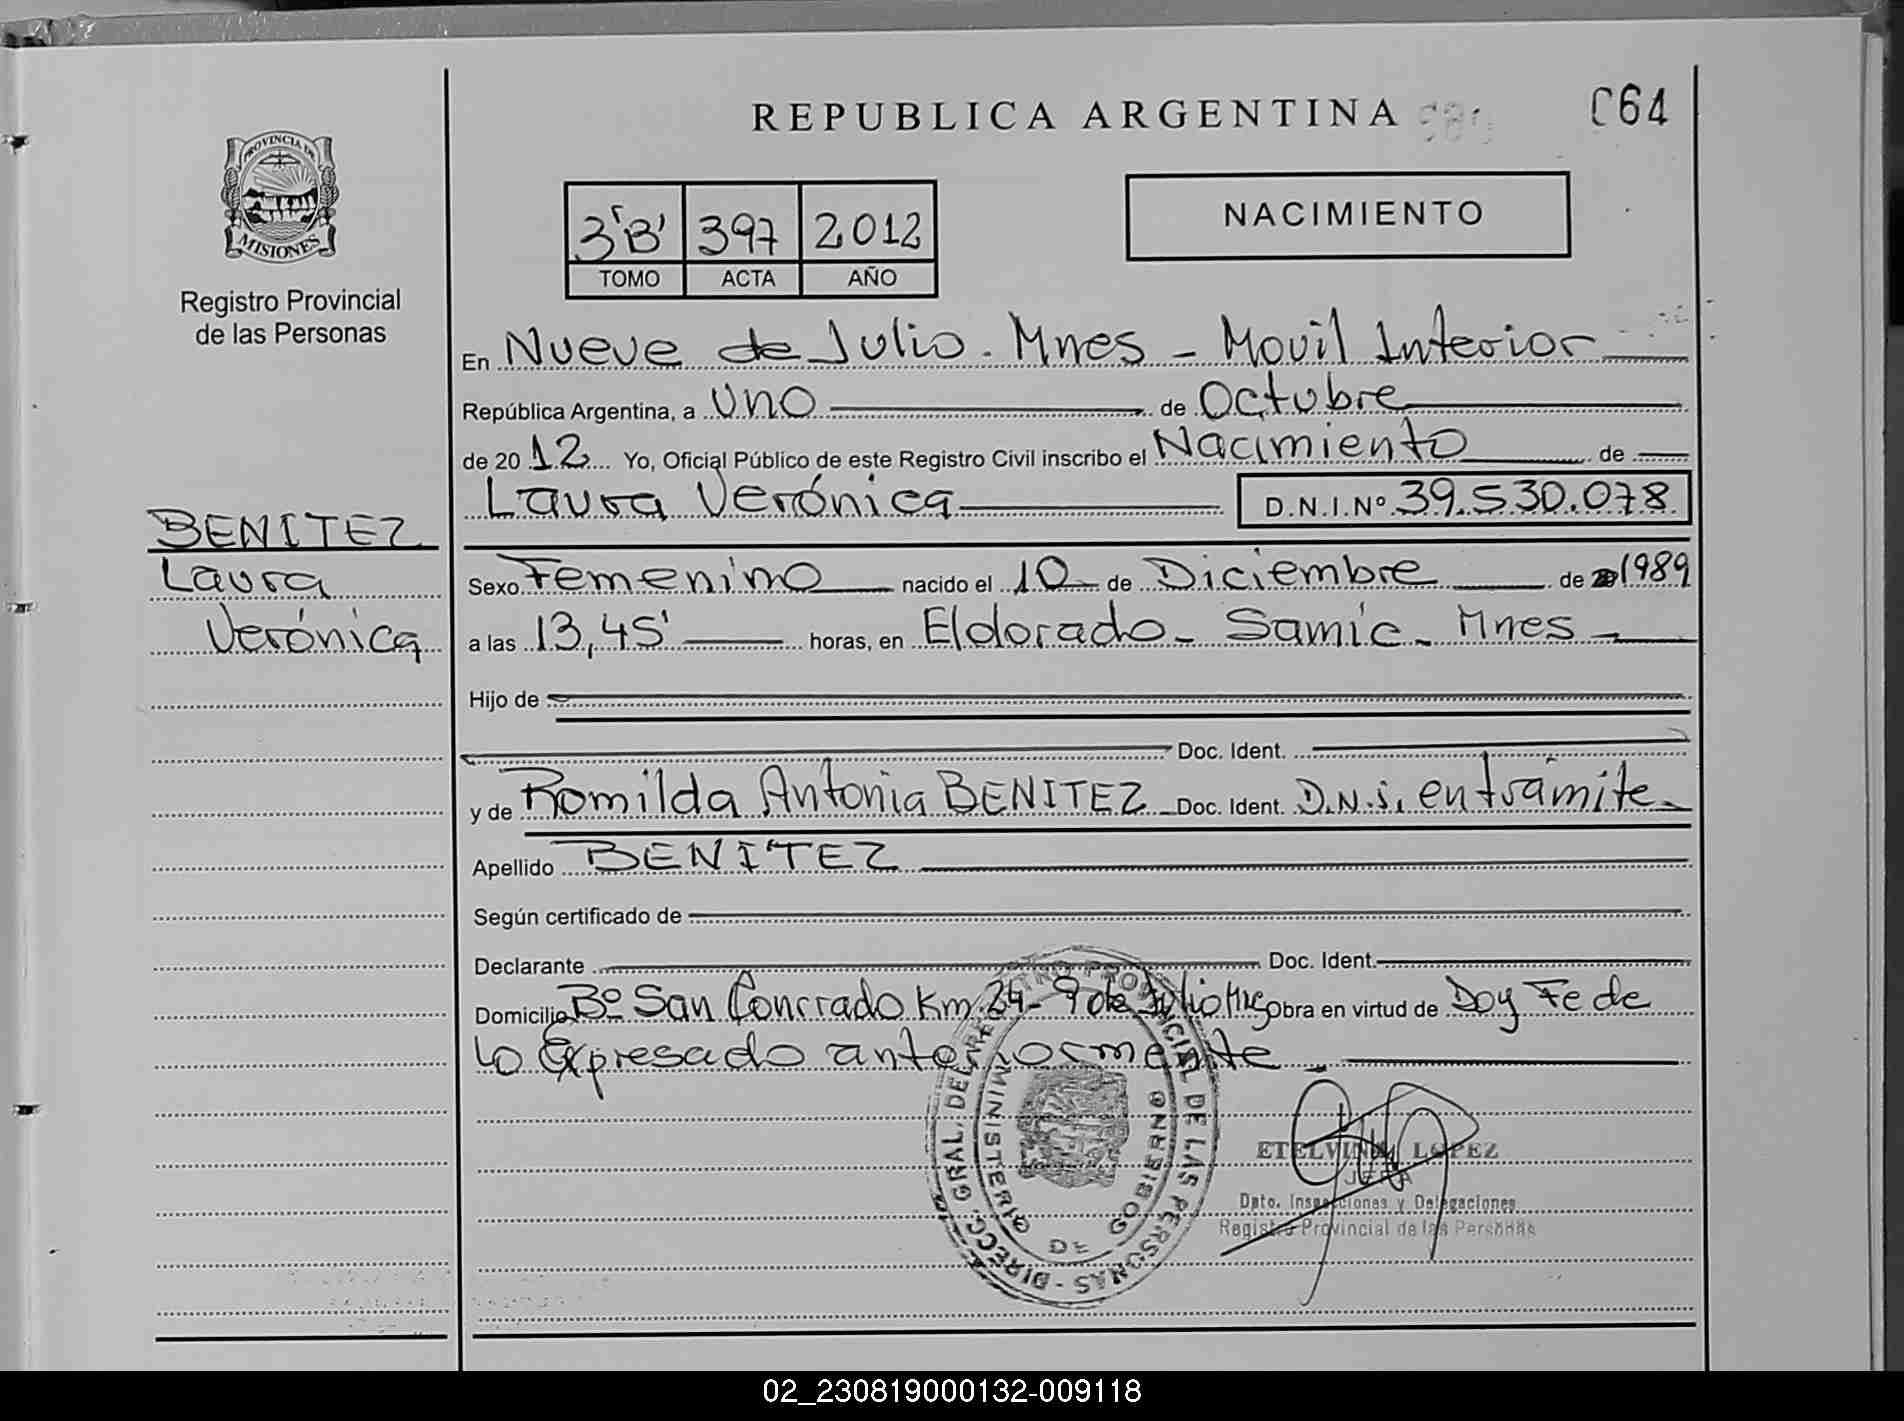 REPUBLICA ARGENTINA
064
PROVINCIA DE
MISIONES
Registro Provincial
de las Personas
NACIMIENTO
3"B" 397 2012
TOMO ACTA AÑO
En Nueve de Julio. Mnes - Movil Interior
República Argentina, a Uno de Octubre
de 2012 Yo, Oficial Público de este Registro Civil inscribo el Nacimiento de
Laura Verónica D.N.I.Nº 39.530.078
BENITEZ
Laura
Verónica
Sexo Femenino nacido el 10 de Diciembre de 1989
a las 13,45' horas, en Eldorado - Samic - Mnes -
Hijo de
Doc. Ident.
y de Romilda Antonia BENITEZ Doc. Ident. D.N.i. en trámite
Apellido BENITEZ
Según certificado de
Declarante Doc. Ident.
Domicilio Bº San Conrrado Km 24 - 9 de Julio Mnes Obra en virtud de Doy Fe de
lo Expresado anteriormente.
DIRECC. GRAL. DEL REGISTRO PROVINCIAL DE LAS PERSONAS -
MINISTERIO DE GOBIERNO
ETELVINA LOPEZ
JEFA
Dpto. Inspecciones y Delegaciones
Registro Provincial de las Personas
02_230819000132-009118